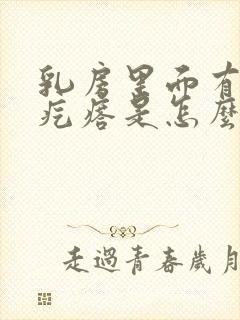 乳房里面有
疙瘩是怎麼
走過青春歲月